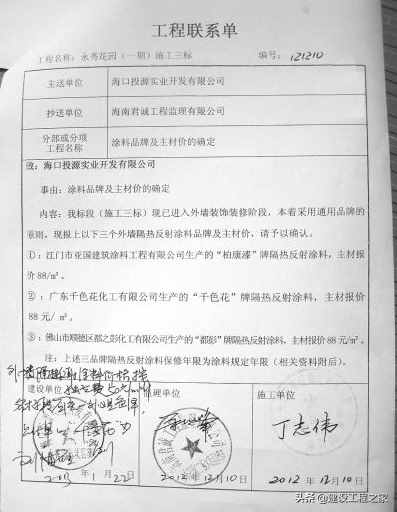 工程联系单
工程名称：永秀花园（一期）施工三标 编号：121210
主送单位 海口投源实业开发有限公司
抄送单位 海南君诚工程监理有限公司
分部或分项工程名称 涂料品牌及主材价的确定
致：海口投源实业开发有限公司
事由：涂料品牌及主材价的确定
内容：我标段（施工三标）现已进入外墙装饰装修阶段，本着采用通用品牌的
原则，现报上以下三个外墙隔热反射涂料品牌及主材价，请予以确认。
①：江门市亚国建筑涂料工程有限公司生产的“柏康漆”牌隔热反射涂料，主材报
价 88/㎡。
②：广东千色花化工有限公司生产的“千色花”牌隔热反射涂料，主材报价
88 元/㎡。
③：佛山市顺德区都之彭化工有限公司生产的“都彭”牌隔热反射涂料，主材报价 88 元/㎡。
注：上述三品牌隔热反射涂料保修年限为涂料规定年限（相关资料附后）。
外墙隔热反射涂料价格按
建设单位 监理单位 施工单位
丁志伟
年 1 月 22 日
2012 年 12 月 10 日
2012 年 12 月 10 日
头条 @建设工程之家